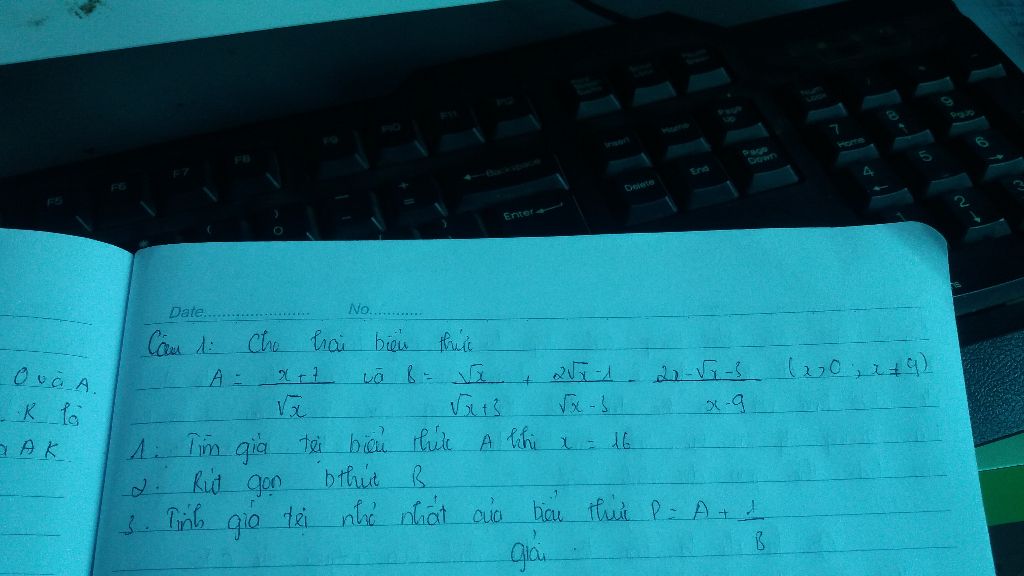 F5 F6 F7 F8 F9 F10 F11 F12
Backspace
Enter
Insert Home Page Up
Delete End Page Down
Num Lock / * -
7 Home 8 9 PgUp
4 5 6
2 3
Date No
Câu 1: Cho hai biểu thức
A = x+7/√x và B = √x/√x+3 + 2√x-1/√x-3 - 2x-√x-3/x-9 (x>0; x≠9)
1. Tìm giá trị biểu thức A khi x = 16
2. Rút gọn bthức B
3. Tính giá trị nhỏ nhất của biểu thức P = A + 1/B
giải
O và A.
R là
AK